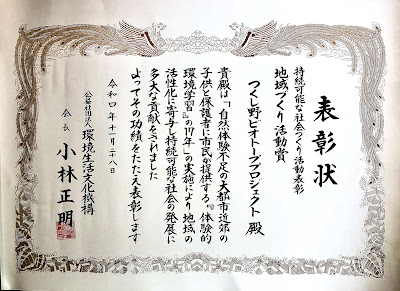 表彰状
持続可能な社会づくり活動表彰
地域づくり活動賞
つくし野ビオトーププロジェクト 殿
貴殿は「自然体験不足の大都市近郊の
子供と保護者に市民が提供する、『体験的
環境学習』の17年」の実施により地域の
活性化に寄与し持続可能な社会の発展に
多大な貢献をされました
よってその功績をたたえ表彰します
令和四年十一月二八日
公益社団法人 環境生活文化機構
会長 小林正明